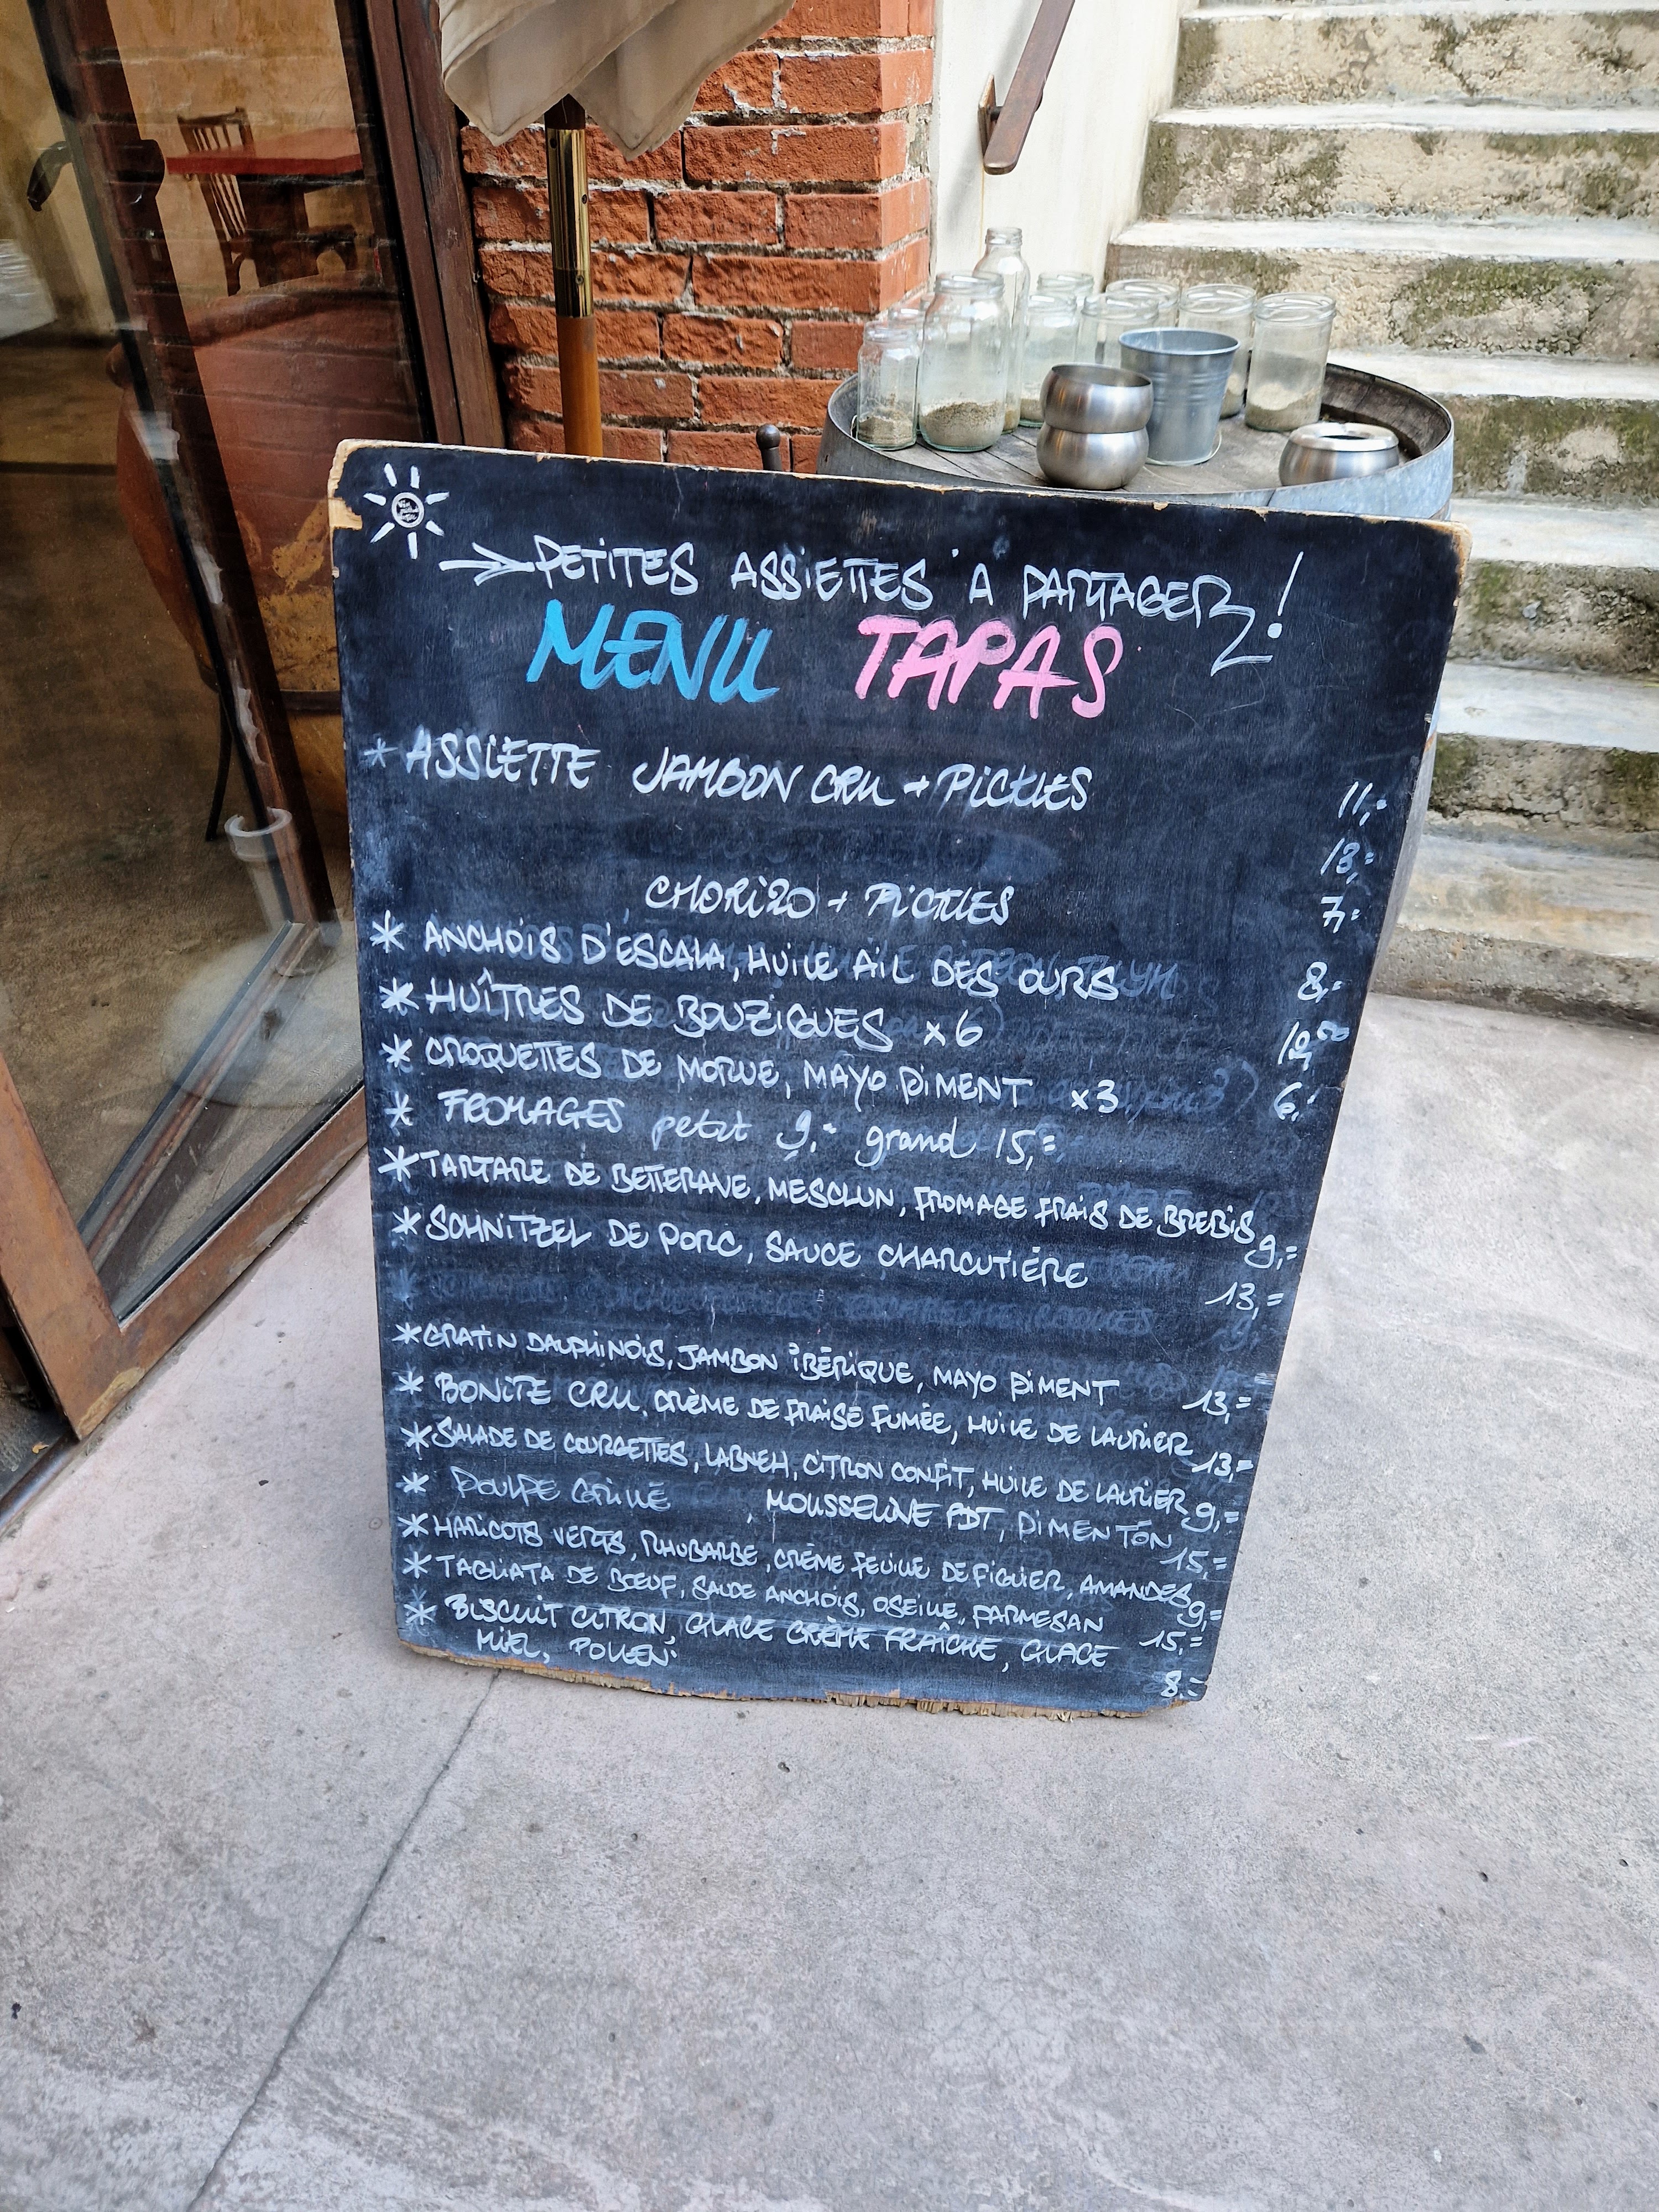 PETITES ASSIETTES À PARTAGER !
MENU TAPAS
* ASSIETTE JAMBON CRU + PICKLES 11,-
13,-
CHORIZO + PICKLES 7,-
* ANCHOIS D'ESCALA, HUILE AIL DES OURS 8,-
* HUÎTRES DE BOUZIGUES x6
* CROQUETTES DE MORUE, MAYO PIMENT x3 6,-
* FROMAGES petit 9,- grand 15,-
* TARTARE DE BETTERAVE, MESCLUN, FROMAGE FRAIS DE BREBIS 9,-
* SCHNITZEL DE PORC, SAUCE CHARCUTIÈRE 13,-
* GRATIN DAUPHINOIS, JAMBON IBÉRIQUE, MAYO PIMENT 13,-
* BONITE CRU, CRÈME DE FRAISE FUMÉE, HUILE DE LAURIER 13,-
* SALADE DE COURGETTES, LABNEH, CITRON CONFIT, HUILE DE LAURIER 9,-
* POULPE GRILLÉ , MOUSSELINE PDT, PIMENTÓN 15,-
* HARICOTS VERTS, RHUBARBE, CRÈME FEUILLE DE FIGUIER, AMANDES 9,-
* TAGLIATA DE BŒUF, SAUCE ANCHOIS, OSEILLE, PARMESAN 15,-
* BISCUIT CITRON, GLACE CRÈME FRAÎCHE, GLACE
MIEL, POLLEN 8,-